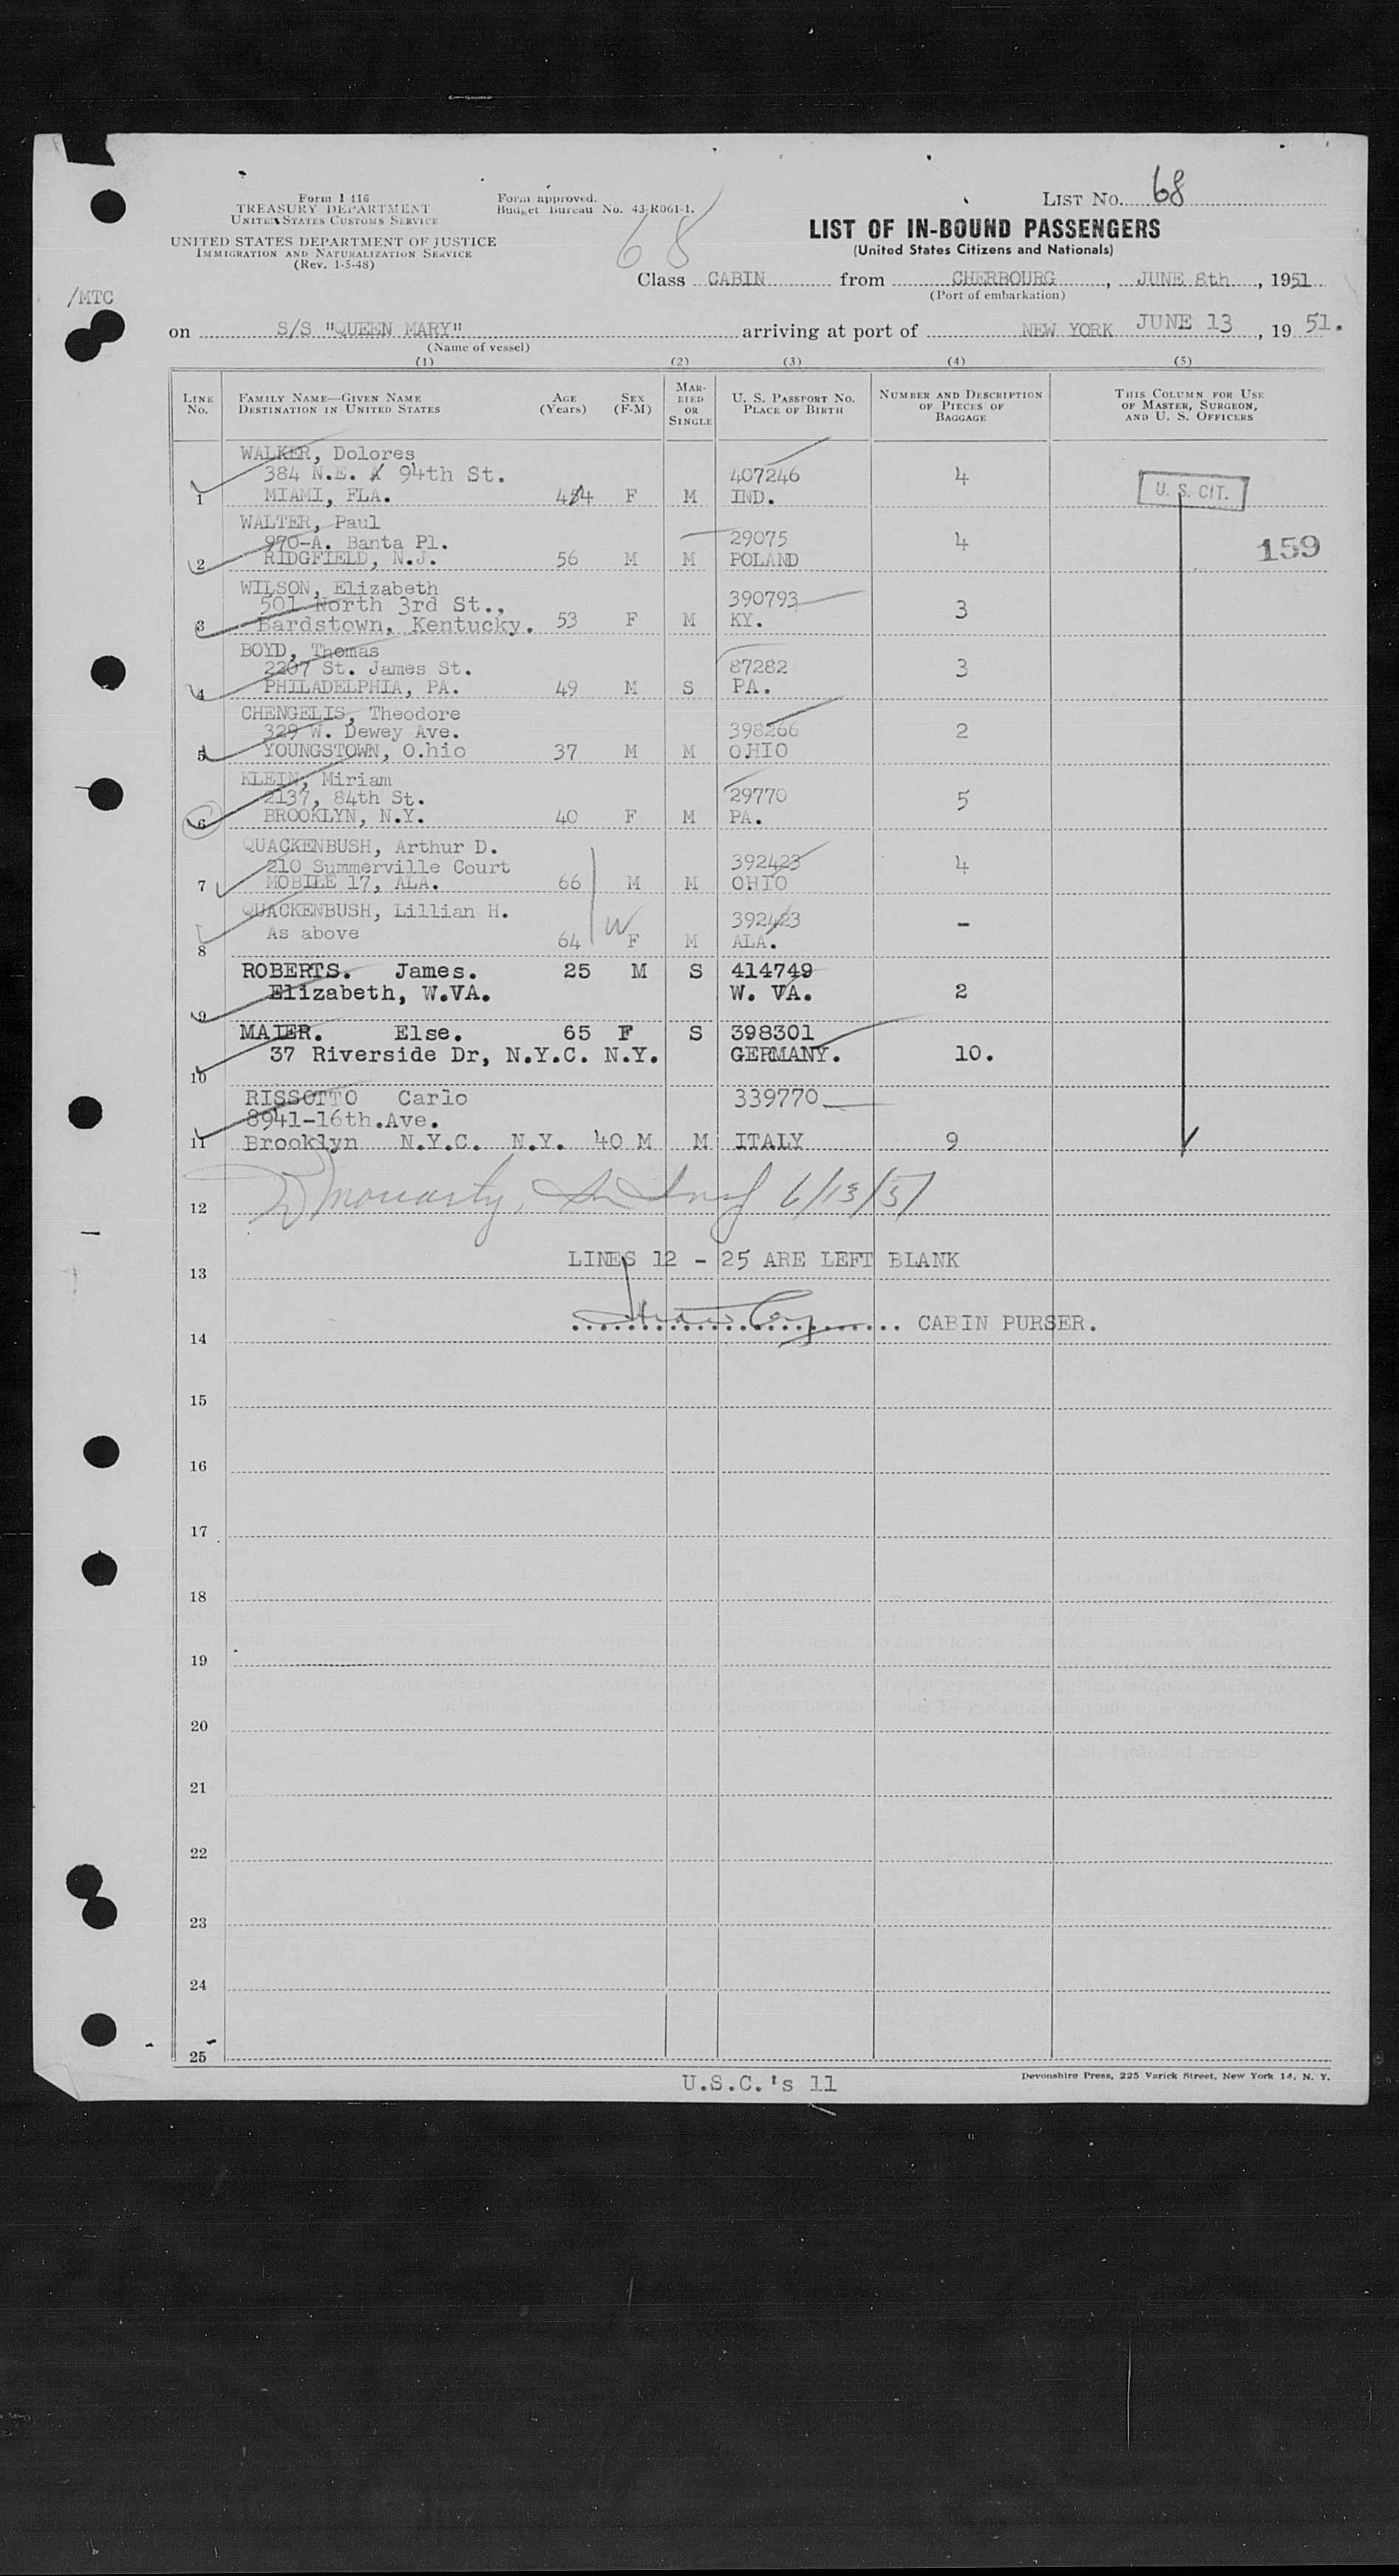 Form I 416
TREASURY DEPARTMENT
UNITED STATES CUSTOMS SERVICE
UNITED STATES DEPARTMENT OF JUSTICE
IMMIGRATION AND NATURALIZATION SERVICE
(Rev. 1-5-48)
Form approved.
Budget Bureau No. 43-R061-1.
68
LIST No. 68
LIST OF IN-BOUND PASSENGERS
(United States Citizens and Nationals)
Class CABIN from CHERBOURG, JUNE 8th, 1951
(Port of embarkation)
/MTC
on S/S "QUEEN MARY" arriving at port of NEW YORK JUNE 13, 19 51.
(Name of vessel)
(1) (2) (3) (4) (5)
LINE No. FAMILY NAME—GIVEN NAME DESTINATION IN UNITED STATES AGE (Years) SEX (F-M) MARRIED OR SINGLE U. S. PASSPORT NO. PLACE OF BIRTH NUMBER AND DESCRIPTION OF PIECES OF BAGGAGE THIS COLUMN FOR USE OF MASTER, SURGEON, AND U. S. OFFICERS
WALKER, Dolores
384 N.E. 94th St. 407246 4 U. S. CIT.
1 MIAMI, FLA. F M IND.
WALTER, Paul
970-A. Banta Pl. 29075 4 159
2 RIDGFIELD, N.J. 56 M M POLAND
WILSON, Elizabeth
501 North 3rd St., 390793 3
3 Bardstown, Kentucky. 53 F M KY.
BOYD, Thomas
2207 St. James St. 87282 3
4 PHILADELPHIA, PA. 49 M S PA.
CHENGELIS, Theodore
329 W. Dewey Ave. 398266 2
5 YOUNGSTOWN, O.hio 37 M M OHIO
KLEIN, Miriam
2137, 84th St. 29770 5
6 BROOKLYN, N.Y. 40 F M PA.
QUACKENBUSH, Arthur D.
210 Summerville Court 392423 4
7 MOBILE 17, ALA. 66 M M OHIO
QUACKENBUSH, Lillian H. 392423 -
As above W
8 64 F M ALA.
ROBERTS. James. 25 M S 414749
Elizabeth, W.VA. W. VA. 2
9
MAIER. Else. 65 F S 398301
37 Riverside Dr, N.Y.C. N.Y. GERMANY. 10.
10
RISSOTTO Carlo 339770
8941-16th.Ave.
11 Brooklyn N.Y.C. N.Y. 40 M M ITALY 9
12 Moriarty, 6/13/51
LINES 12 - 25 ARE LEFT BLANK
13
CABIN PURSER.
14
15
16
17
18
19
20
21
22
23
24
25
U.S.C.'s 11
Devonshire Press, 225 Varick Street, New York 14, N. Y.